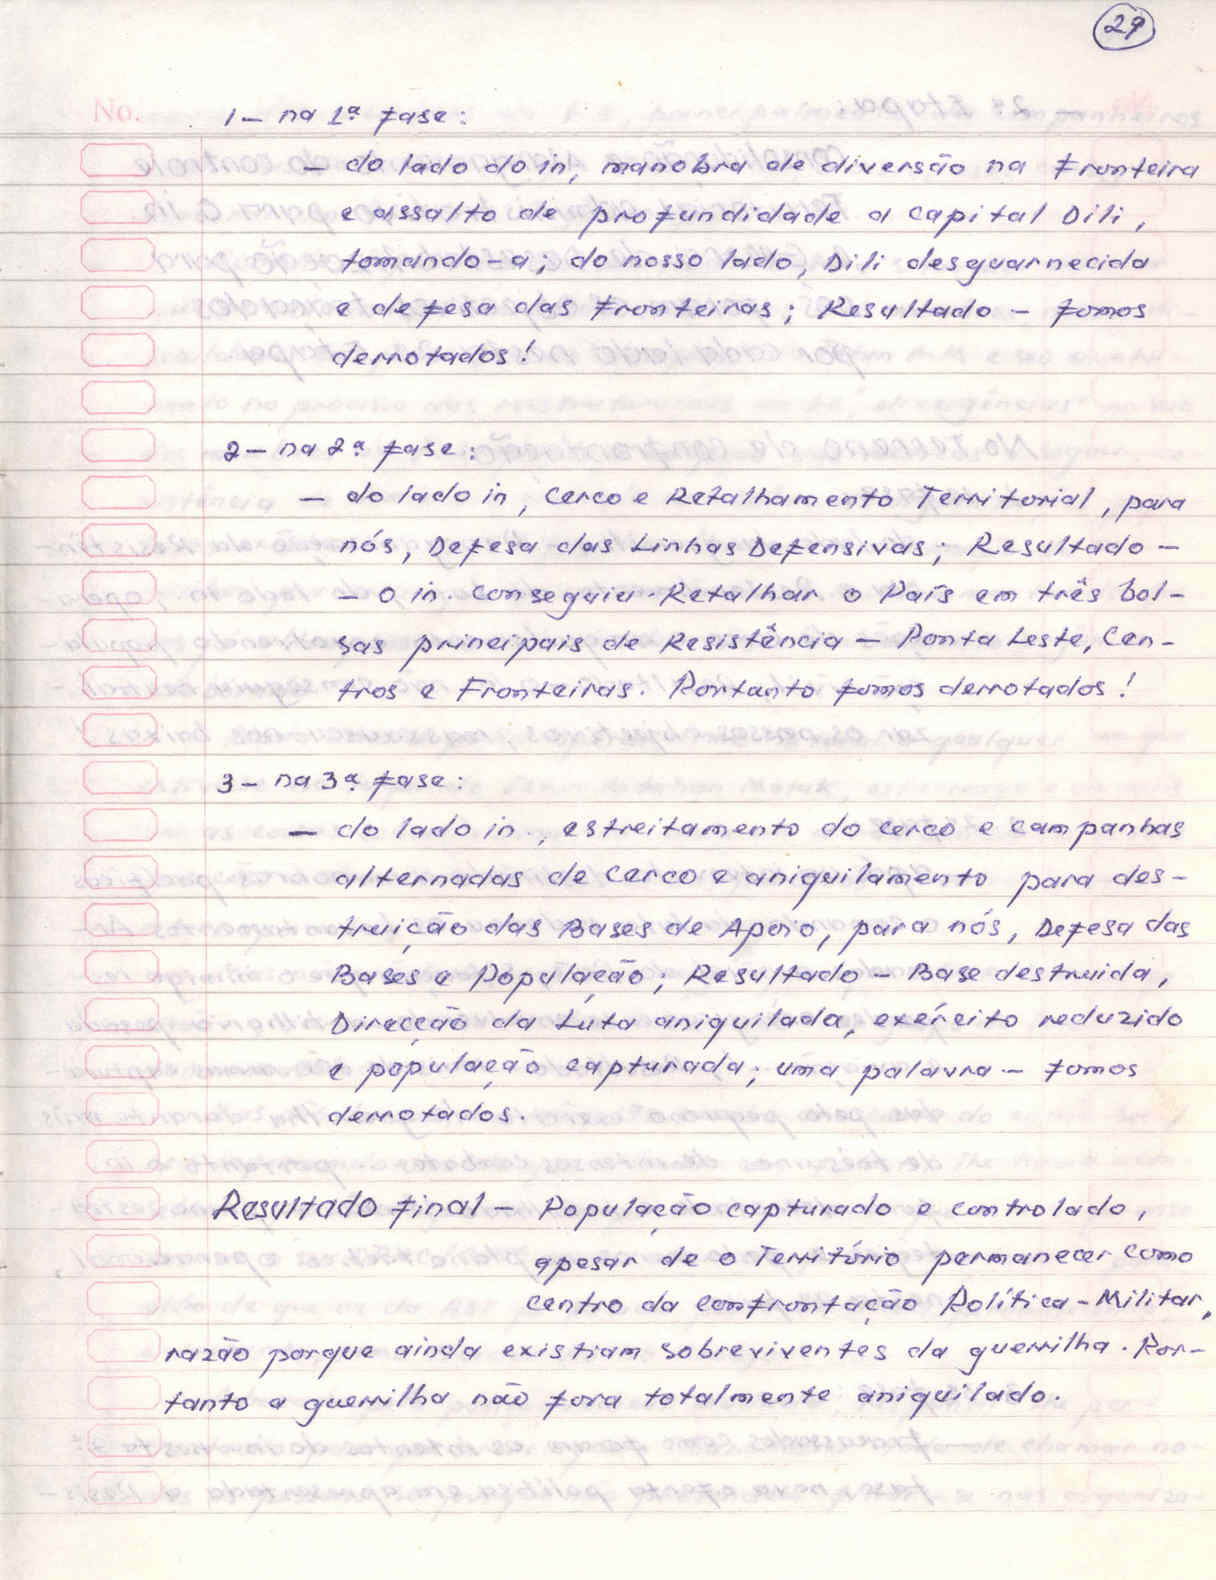 29
No.
1- na 1ª fase:
- do lado do in, manobra de diversão na Fronteira
e assalto de profundidade a capital Dili,
tomando-a; do nosso lado, Dili desguarnecida
e defesa das Fronteiras; Resultado - fomos
derrotados!
2- na 2ª fase:
- do lado in, Cerco e Retalhamento Territorial, para
nós, Defesa das Linhas Defensivas; Resultado -
- O in. conseguiu Retalhar o País em três bol-
sas principais de Resistência - Ponta Leste, Cen-
tros e Fronteiras. Portanto fomos derrotados!
3- na 3ª fase:
- do lado in., estreitamento do cerco e campanhas
alternadas de Cerco e aniquilamento para des-
truição das Bases de Apoio, para nós, Defesa das
Bases e População; Resultado - Base destruida,
Direcção da Luta aniquilada, exército reduzido
e população capturada; uma palavra - fomos
derrotados.
Resultado final - População capturado e controlado,
apesar de o Território permanecer como
centro da confrontação Política-Militar,
razão porque ainda existiam sobreviventes da guerrilha. Por-
tanto a guerrilha não fora totalmente aniquilado.